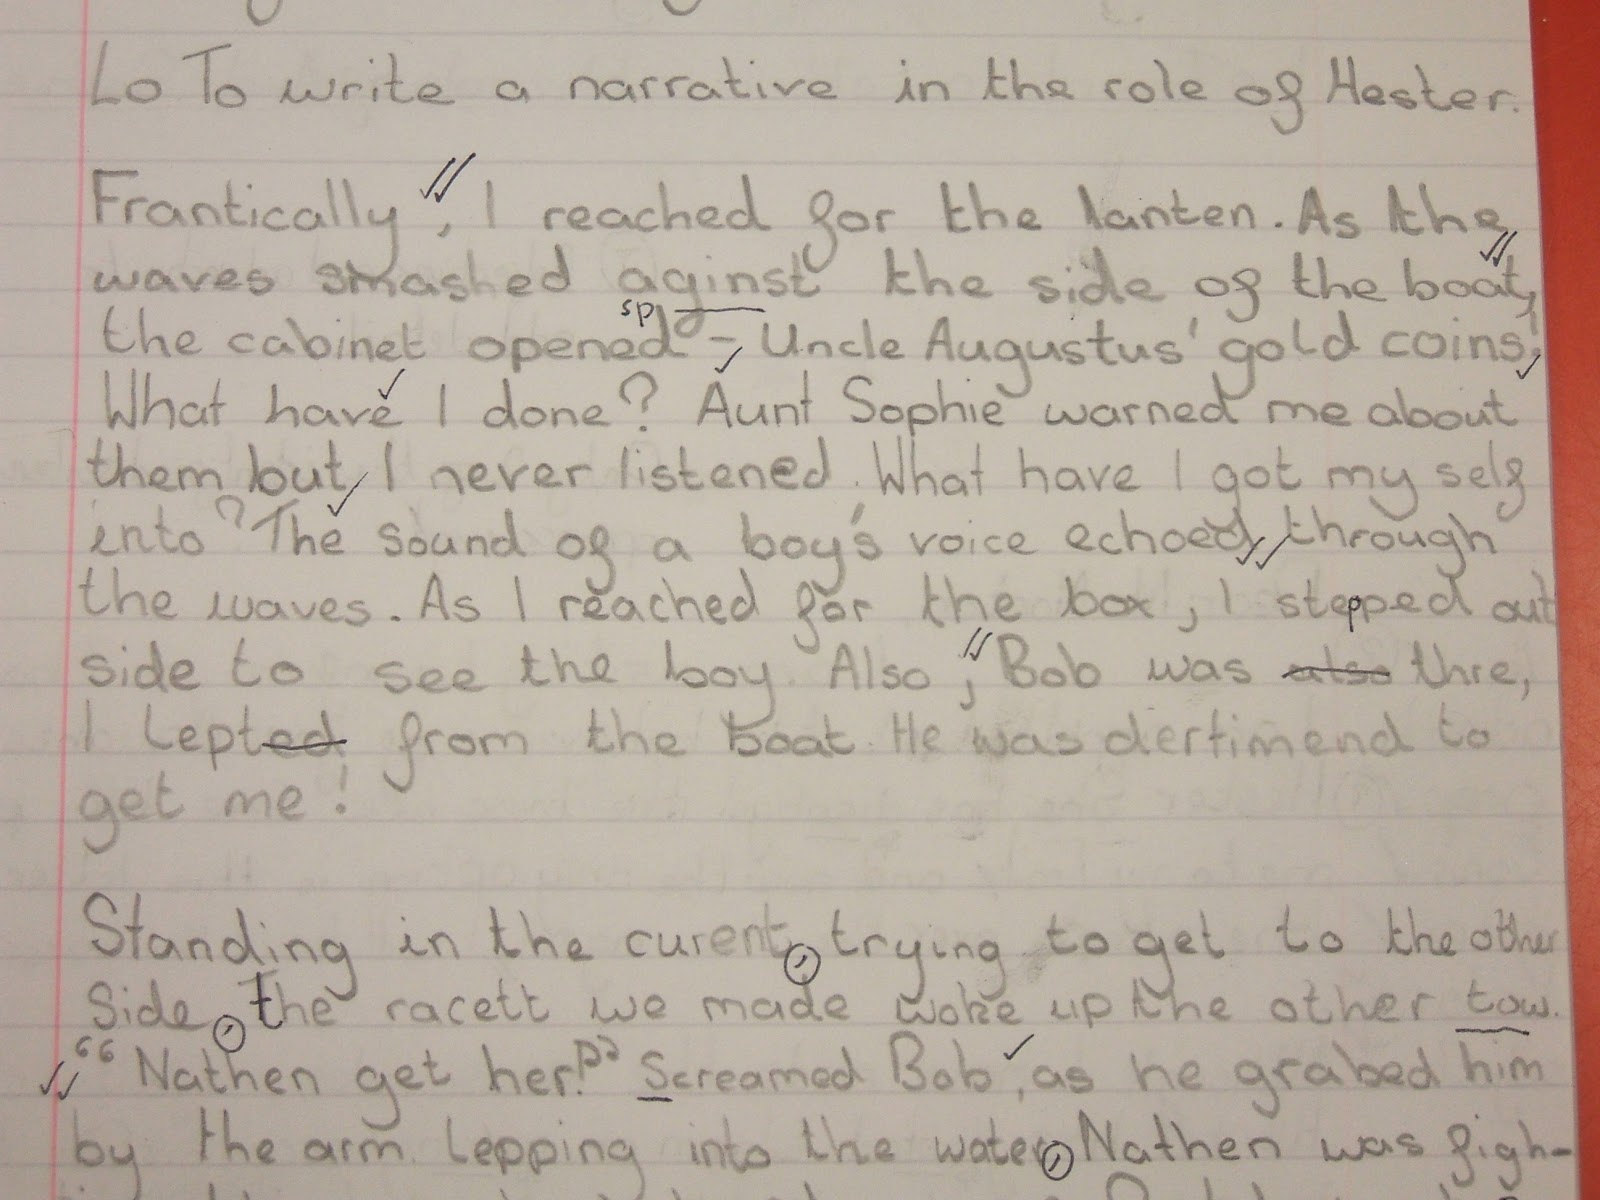 Lo To write a narrative in the role of Hester.
Frantically, I reached for the lanten. As the
waves smashed aginst the side of the boat,
sp
the cabinet opened - Uncle Augustus' gold coins!
What have I done? Aunt Sophie warned me about
them but, I never listened. What have I got my self
into? The sound of a boy's voice echoed, through
the waves. As I reached for the box, I stepped out
side to see the boy. Also, Bob was also thre,
I lepted from the boat. He was dertimend to
get me!
Standing in the curent, trying to get to the other
Side, the racett we made woke up the other tow.
"Nathen get her!" Screamed Bob, as he grabed him
by the arm. lepping into the water, Nathen was figh-